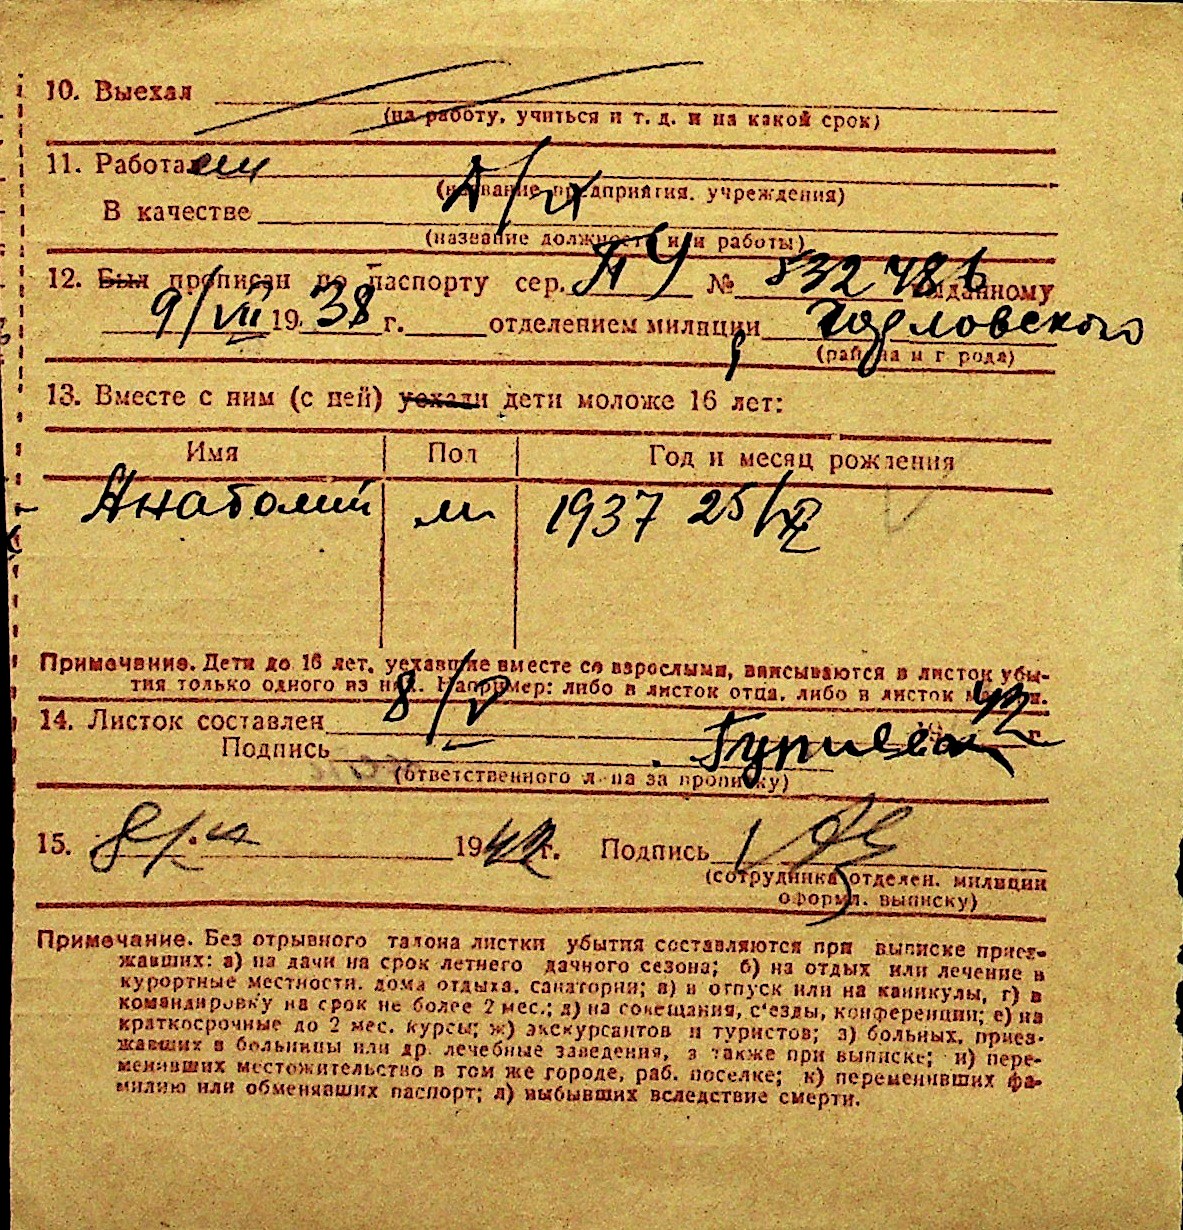 10. Выехал
(на работу, учиться и т. д. и на какой срок)
11. Работа
(название предприятия, учреждения)
В качестве Д/х
(название должности или работы)
12. Был прописан по паспорту сер. ПУ № 532486 выданному
9/VII 1938 г. отделением милиции
(района и города)
13. Вместе с ним (с ней) уехали дети моложе 16 лет:
Имя Пол Год и месяц рождения
Анатолий м 1937 25/XI
Примечание. Дети до 16 лет, уехавшие вместе со взрослыми, вписываются в листок убы-
тия только одного из них. Например: либо в листок отца, либо в листок матери.
14. Листок составлен 8/V 1942 г.
Подпись
(ответственного лица за прописку)
15. 1942 г. Подпись
(сотрудника отделен. милиции
оформ. выписку)
Примечание. Без отрывного талона листки убытия составляются при выписке приез-
жавших: а) на дачи на срок летнего дачного сезона; б) на отдых или лечение в
курортные местности, дома отдыха, санатории; в) в отпуск или на каникулы, г) в
командировку на срок не более 2 мес.; д) на совещания, с'езды, конференции; е) на
краткосрочные до 2 мес. курсы; ж) экскурсантов и туристов; з) больных, приез-
жавших в больницы или др. лечебные заведения, а также при выписке; и) пере-
менивших местожительство в том же городе, раб. поселке; к) переменивших фа-
милию или обменявших паспорт; л) выбывших вследствие смерти.